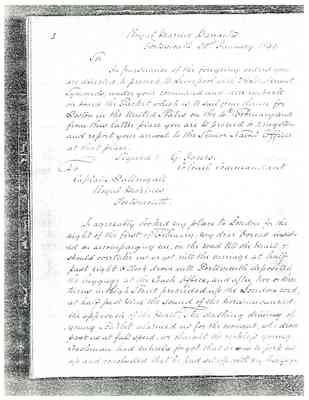 Royal Marine Barracks
Portsmouth 28th January 1840
Sir
In pursuance of the foregoing orders you
are directed to proceed to Liverpool and that Lieut
Symonds, under your command and are embark
on board the Packet which is to sail from thence for
Boston in the United States on the 4th February and
from this latter place you are to proceed to Kingston
and report your arrival to the Senior Naval Officer
at that place.
Signed G. Jones.
To Colonel Commandant
Captain
Royal Marines
Portsmouth.
I agreeably booked my place to London for the
night of the first of February. My dear
on accompanying me, on the road till the Mail
should overtake us we got into the carriage at half
past eight o'clock drove into Portsmouth deposited
the luggage at the Coach Office, and after two or three
turns in High Street proceeded up the London road,
at half past nine the sound of the horn announced
the approach of the Mail. The dashing driving of
young Scarlet alarmed us for the moment, as he drove
past us at full speed, we thought the reckless young
Coachman had entirely forgot that he was to pick us
up and concluded that he had set off with my luggage